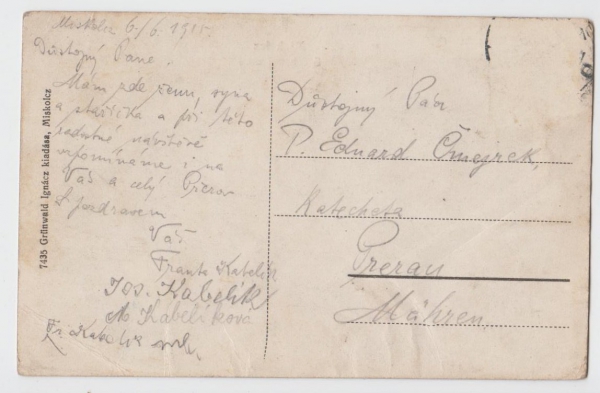 Miskolc 6./6. 1915.
Důstojný Pane,
Mám zde ženu, syna
a stařička a při této
radostné návštěvě
vzpomínáme i na
Vás a celý Přerov
S pozdravem
Váš
Frant. Kabelík
Jos. Kabelík
M Kabelíková
Fr. Kabelík ml.
Důstojný Pán
P. Eduard Čmejrek,
Katecheta
Prerau
Mähren.
7435 Grünwald Ignácz kiadása, Miskolcz